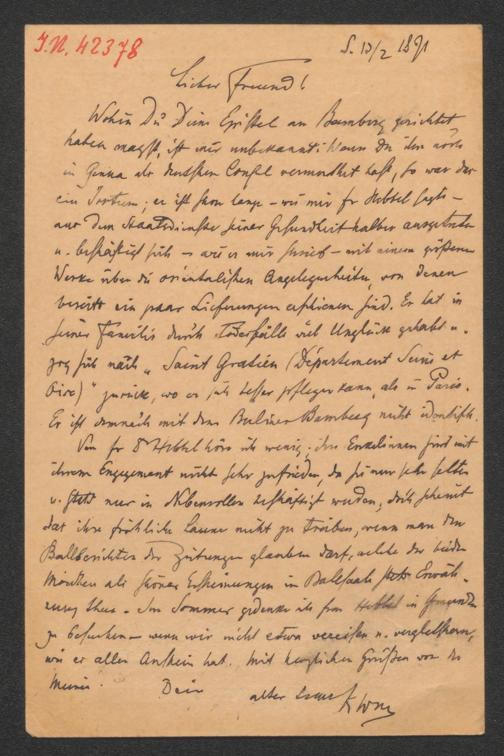 I.N. 42378
S. 13/2 1891
Lieber Freund!
Wohin Du Deine Epistel an Bamberg gerichtet
haben magst, ist mir unbekannt; wenn Du ihn noch
in Genua als deutschen Consul vermuthet hast, so war das
ein Irrtum; er ist schon lange – wie mir Fr Hebbel sagte –
aus dem Staatsdienste seiner Gesundheit halber ausgetreten
u. beschäftigt sich – wie er mir schrieb – mit einem größeren
Werke über die orientalischen Angelegenheiten, von denen
bereits ein paar Lieferungen erschienen sind. Er hat in
seiner Familie durch Todesfälle viel Unglück gehabt u.
zog sich nach „Saint Gratien (Département Seine et
Oise)" zurück, wo er sich besser pflegen kann, als in Paris.
Er ist demnach mit dem Berliner Bamberg nicht identisch.
Von Fr Hebbel höre ich wenig; ihre Enkelinnen sind mit
ihrem Engagement nicht sehr zufrieden, da sie nur sehr selten
u. stets nur in Nebenrollen beschäftigt werden, doch scheint
das ihre fröhliche Laune nicht zu trüben, wenn man den
Ballberichten der Zeitungen glauben darf, welche der beiden
Mädchen als schöner Erscheinungen im Ballsaale stets Erwäh-
nung thun. – Im Sommer gedenke ich Frau Hebbel in Gmunden
zu besuchen – wenn wir nicht etwa vereisen u. vergletschern,
wie es allen Anschein hat. Mit herzlichen Grüßen von der
Dein
alter